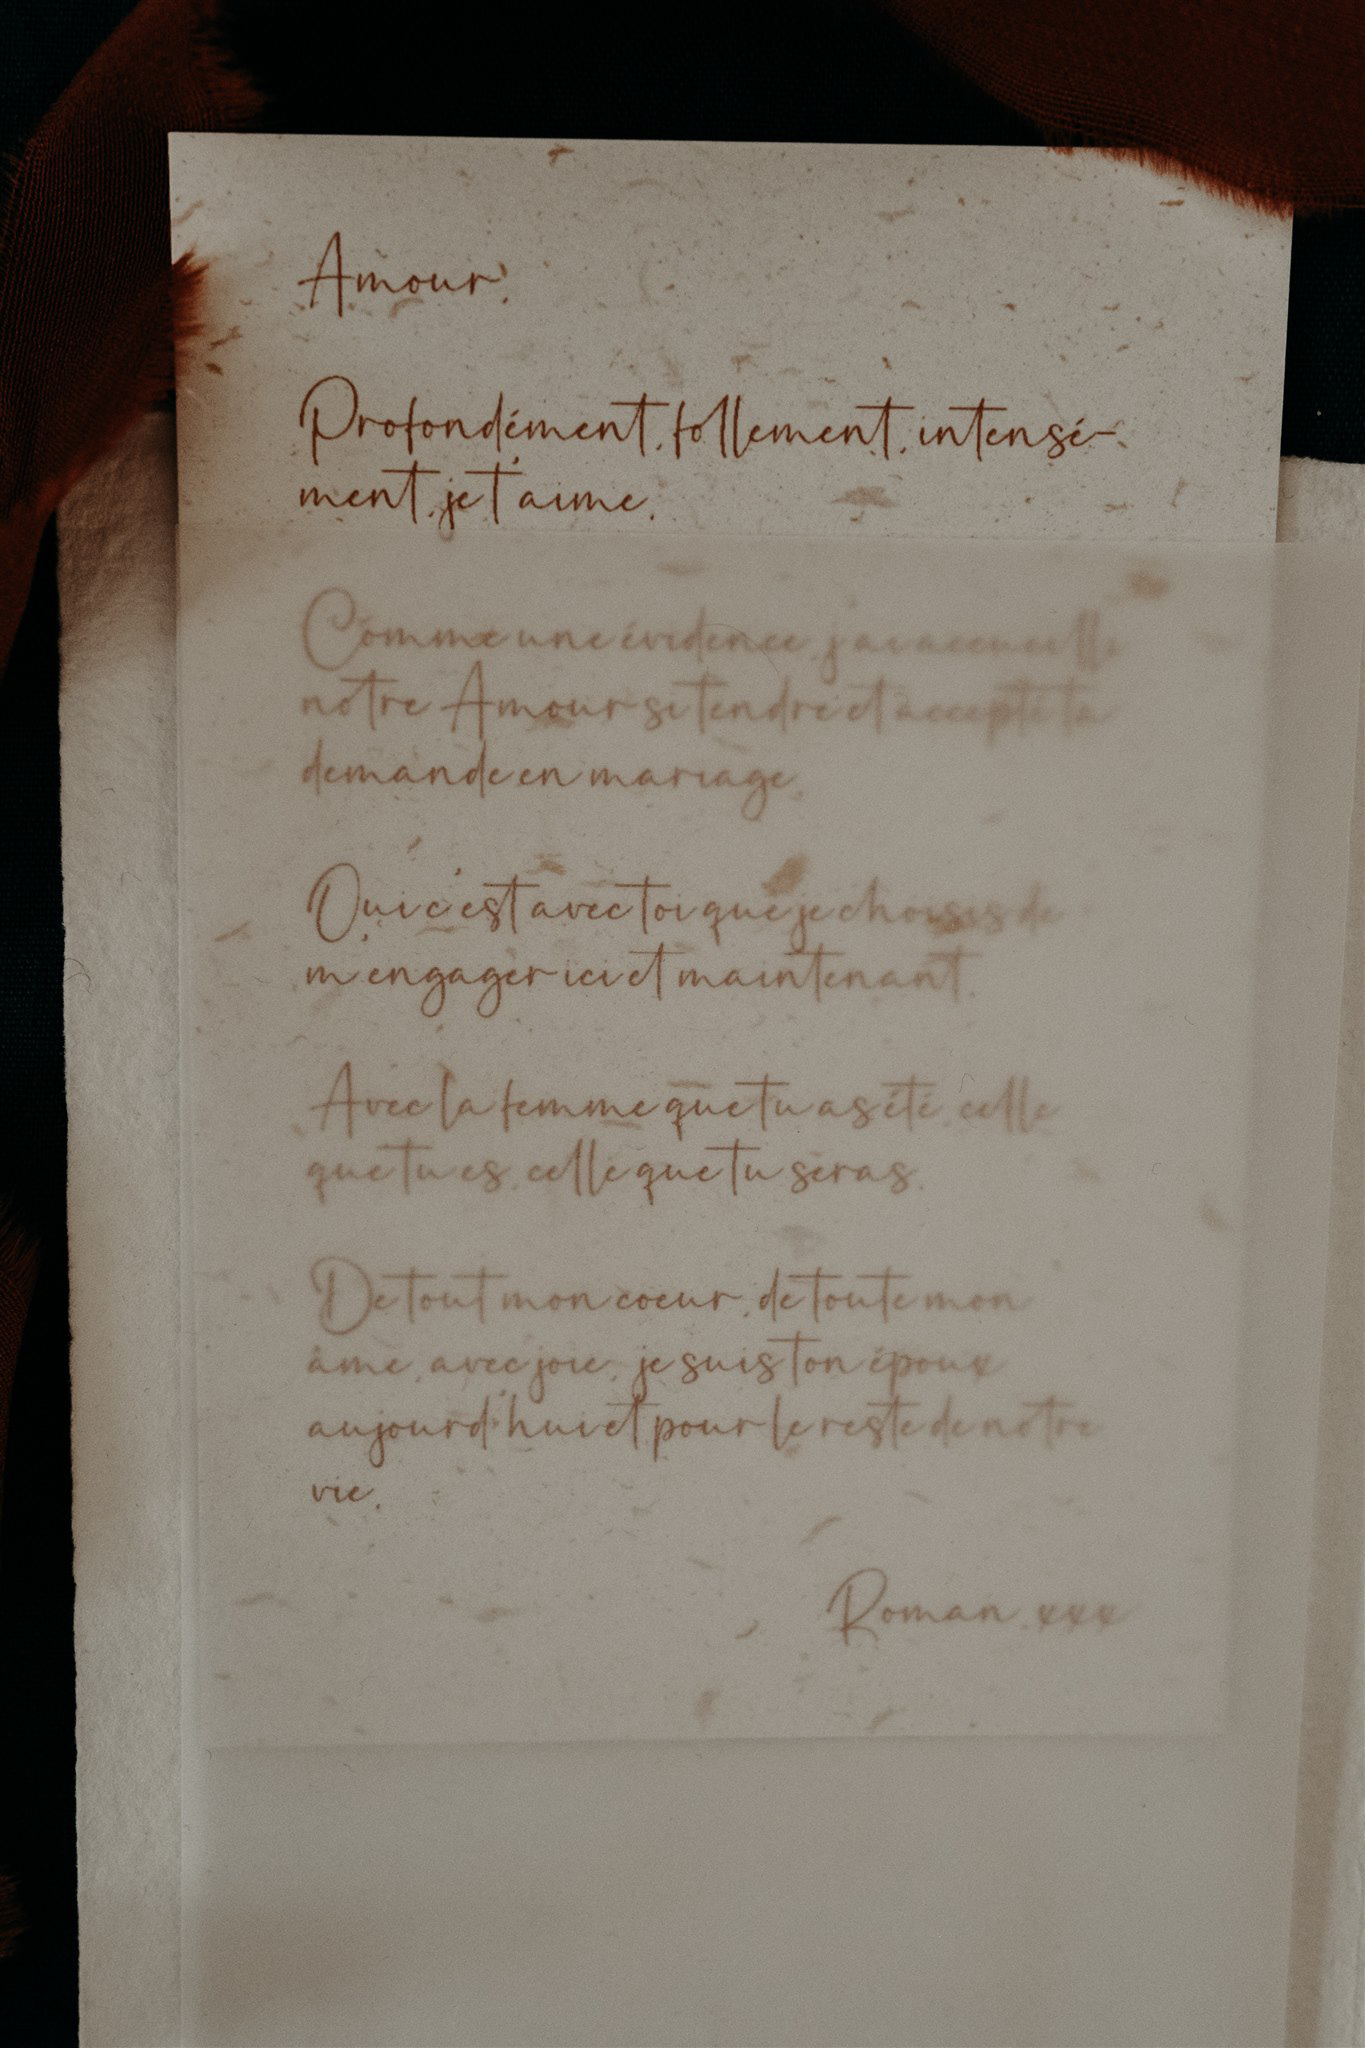 Amour,
Profondément, follement, intensé-
ment, je t'aime.
Comme une évidence, j'ai accueilli
notre Amour si tendre et accepté ta
demande en mariage.
Oui c'est avec toi que je choisis de
m'engager ici et maintenant.
Avec la femme que tu as été, celle
que tu es, celle que tu seras.
De tout mon coeur, de toute mon
âme, avec joie, je suis ton époux
aujourd'hui et pour le reste de notre
vie.
Roman xxx